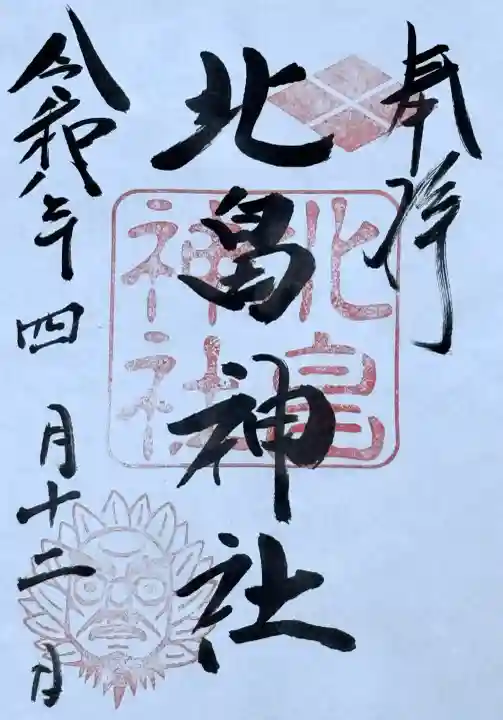 奉拝
北畠神社
令和八年四月十二日
北畠
神社